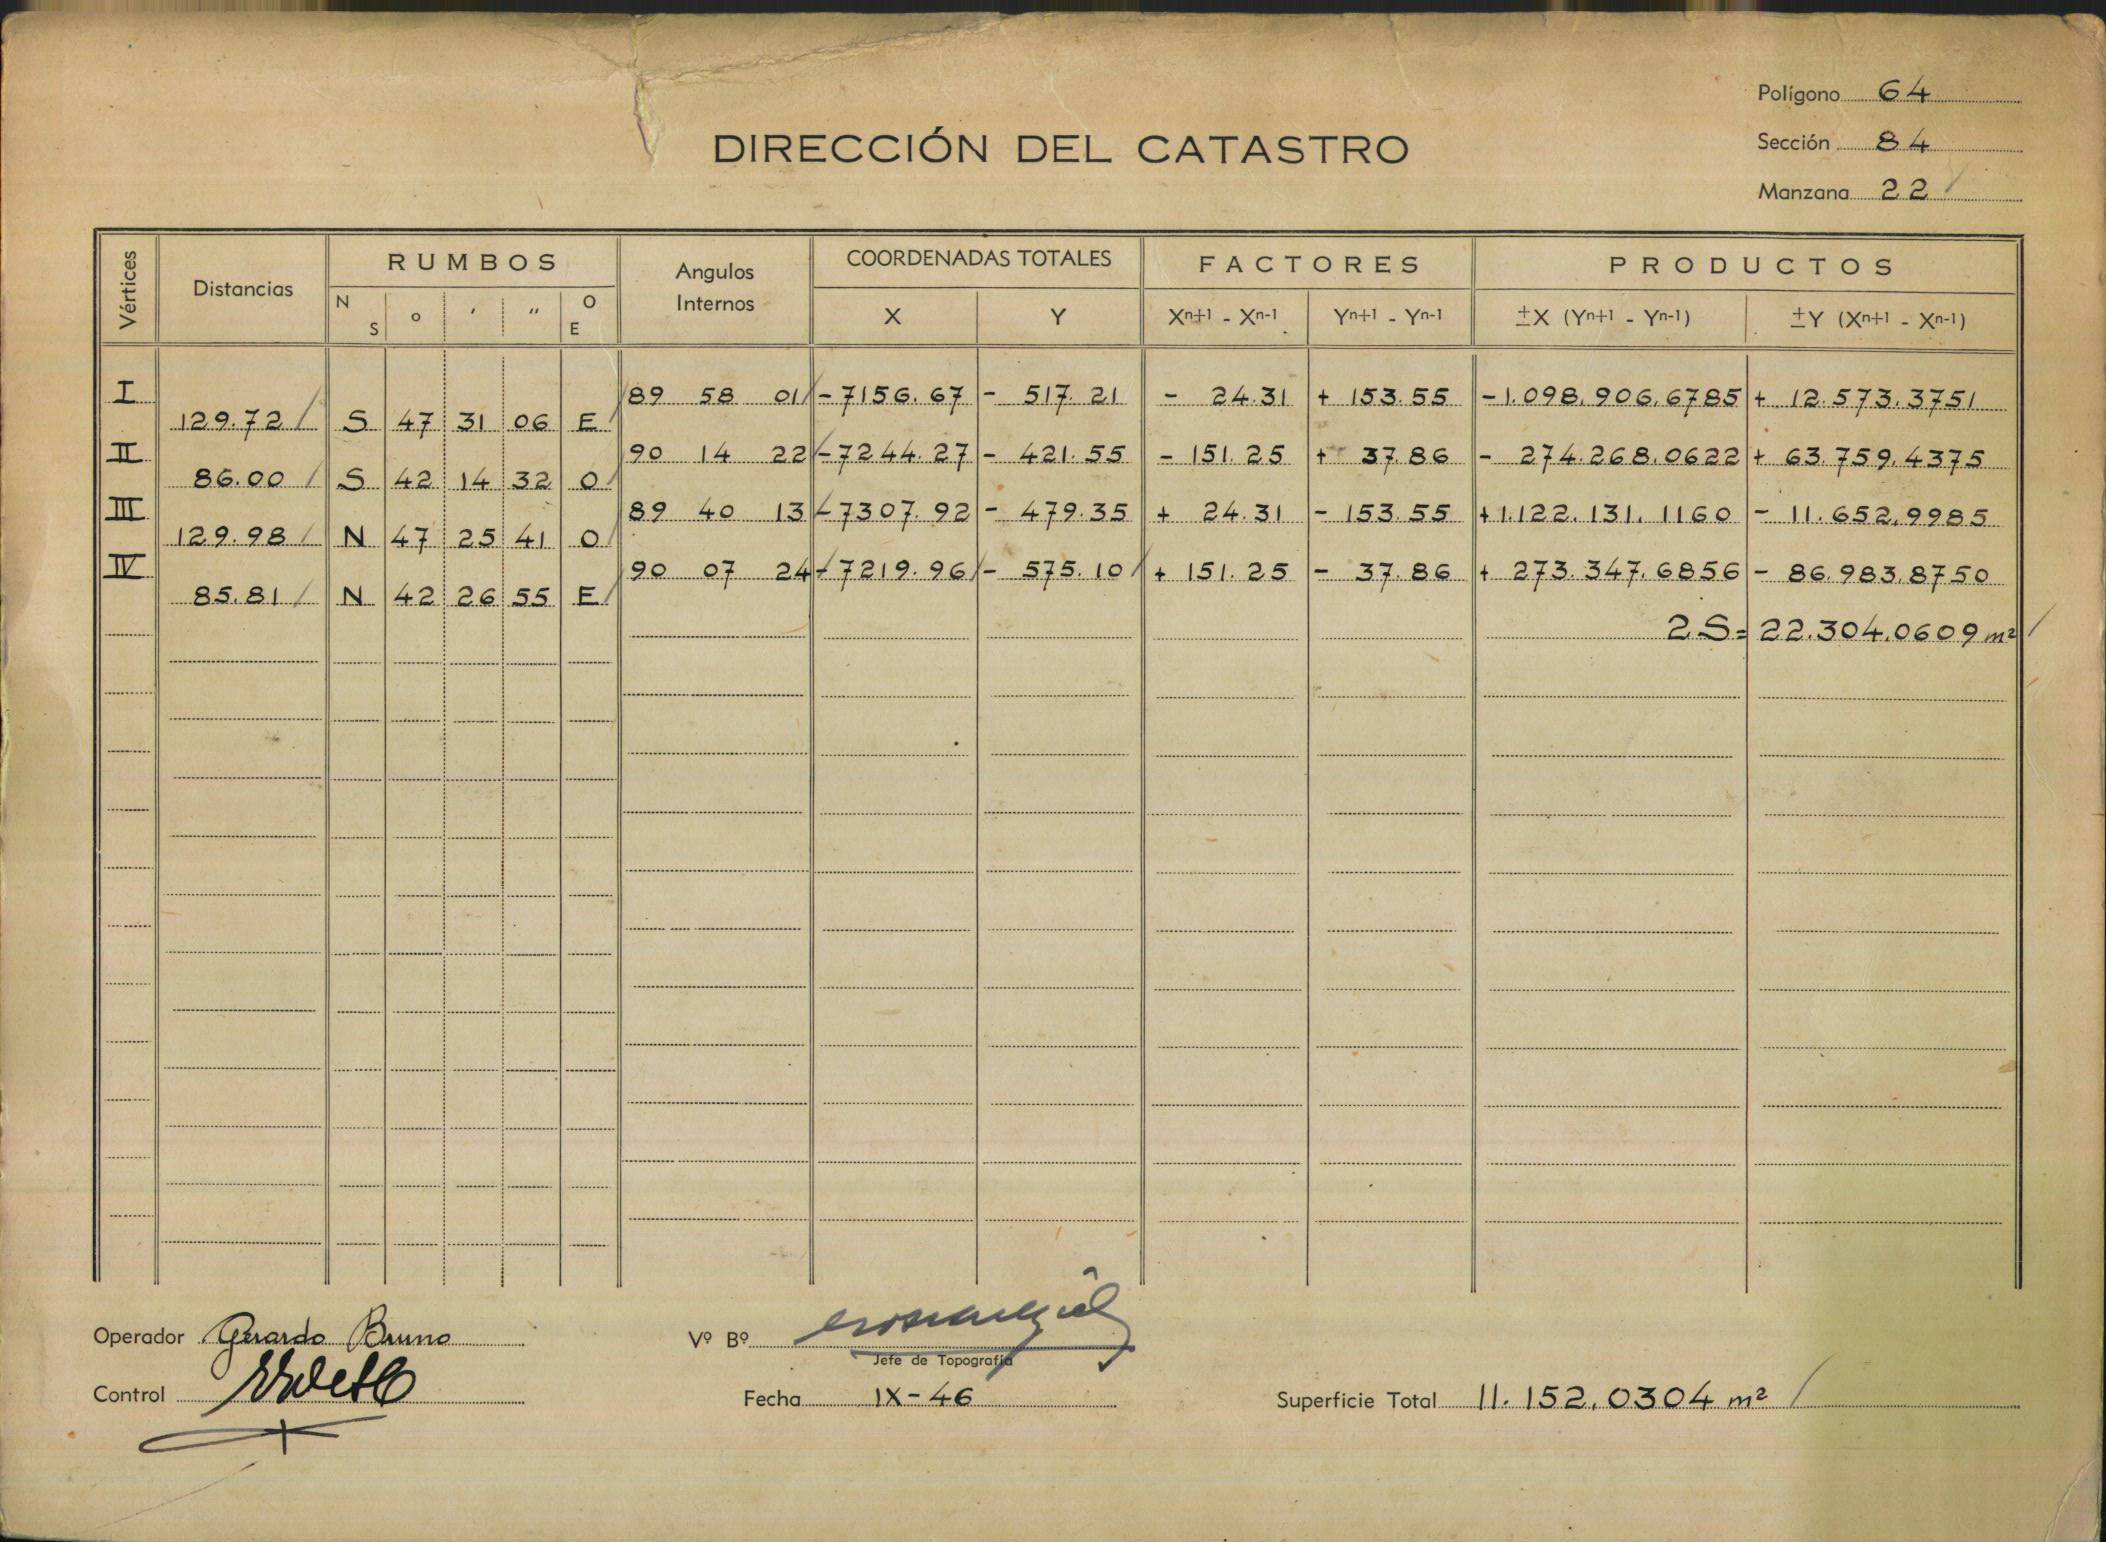 Polígono 64
DIRECCIÓN DEL CATASTRO
Sección 84
Manzana 22
Vértices Distancias RUMBOS Angulos Internos COORDENADAS TOTALES FACTORES PRODUCTOS
N S ° ' " O E X Y Xn+1 - Xn-1 Yn+1 - Yn-1 ±X (Yn+1 - Yn-1) ±Y (Xn+1 - Xn-1)
I 89 58 01 -7156.67 - 517.21 - 24.31 + 153.55 -1.098.906.6785 + 12.573.3751
129.72 S 47 31 06 E
II 90 14 22 -7244.27 - 421.55 - 151.25 + 37.86 - 274.268.0622 + 63.759.4375
86.00 S 42 14 32 O
III 89 40 13 -7307.92 - 479.35 + 24.31 - 153.55 +1.122.131.1160 - 11.652.9985
129.98 N 47 25 41 O
IV 90 07 24 -7219.96 - 575.10 + 151.25 - 37.86 + 273.347.6856 - 86.983.8750
85.81 N 42 26 55 E
2S= 22.304.0609 m²
Operador Gerardo Bruno Vº Bº
Jefe de Topografía
Control Fecha IX-46 Superficie Total 11.152.0304 m²